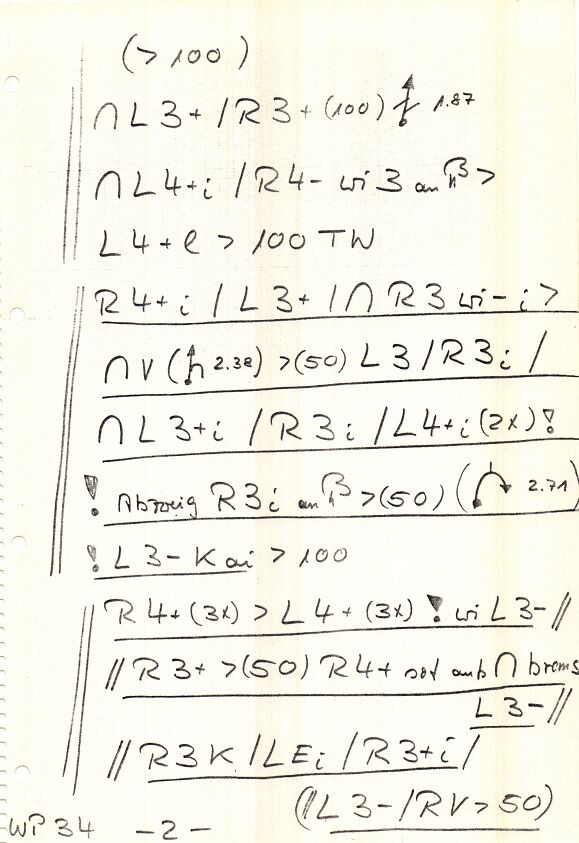 (> 100)
∩ L 3+ / R 3 + (100) 1.87
∩ L 4+i / R 4- wi 3 an >
L 4 + e > 100 TW
R 4+i / L 3+ / ∩ R 3 wi-i >
∩ V ( 2.38) > (50) L 3 / R 3 i /
∩ L 3+i / R 3 i / L 4+i (2x) !
! Abzweig R 3 i an > (50) ( 2.71
! L 3- K ai > 100
R 4+ (3x) > L 4+ (3x) ! wi L 3- //
// R 3+ > (50) R 4+ auf ∩ brems
L 3- //
// R 3 K / L E i / R 3+i /
(// L 3- / R V > 50)
WP 34 - 2 -